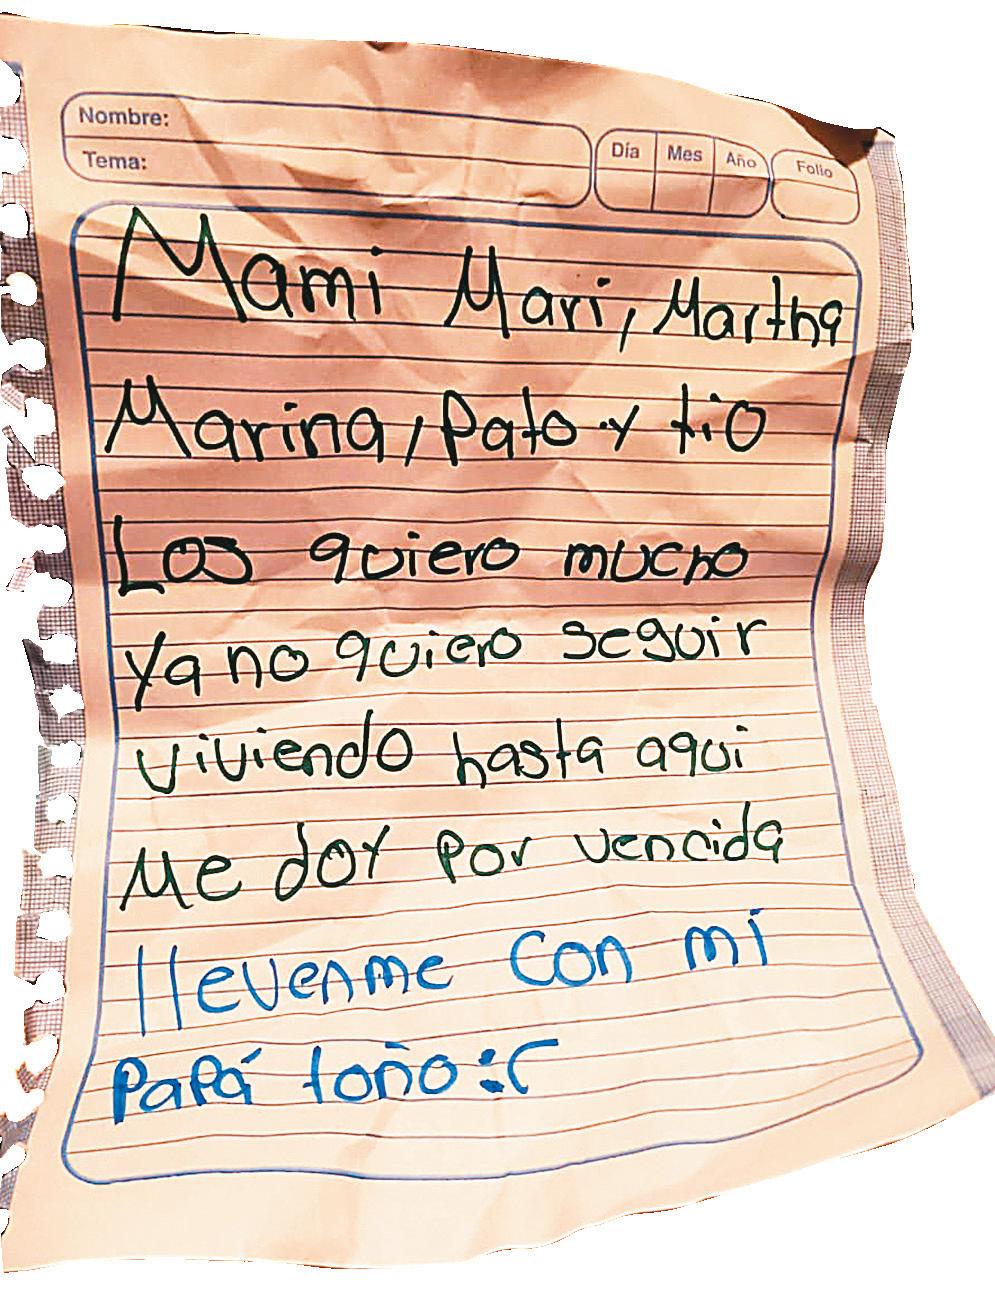 Nombre:
Tema:
Día Mes Año Folio
Mami Mari, Martha
Marina, Pato y tio
Los quiero mucho
Ya no quiero seguir
viviendo hasta aqui
Me doy por vencida
llevenme con mi
Papá toño :(